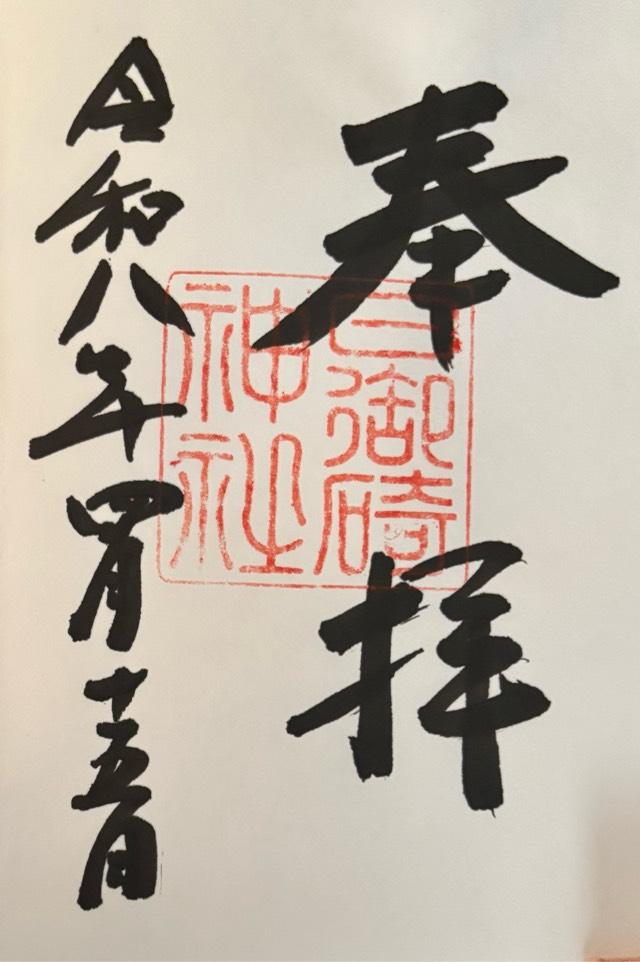 奉拝
日御碕
神社
令和八年四月十五日